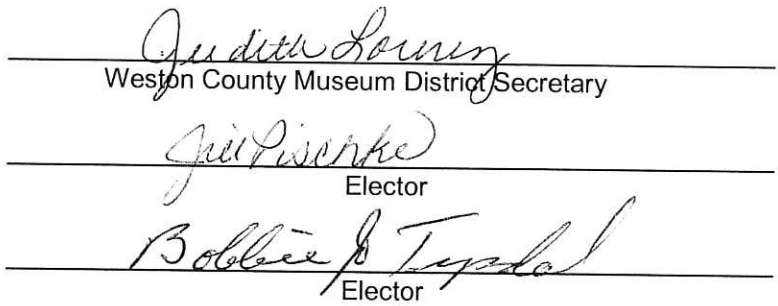 Judith
Weston County Museum District Secretary
Jill Pischke
Elector
Bobbie
Elector